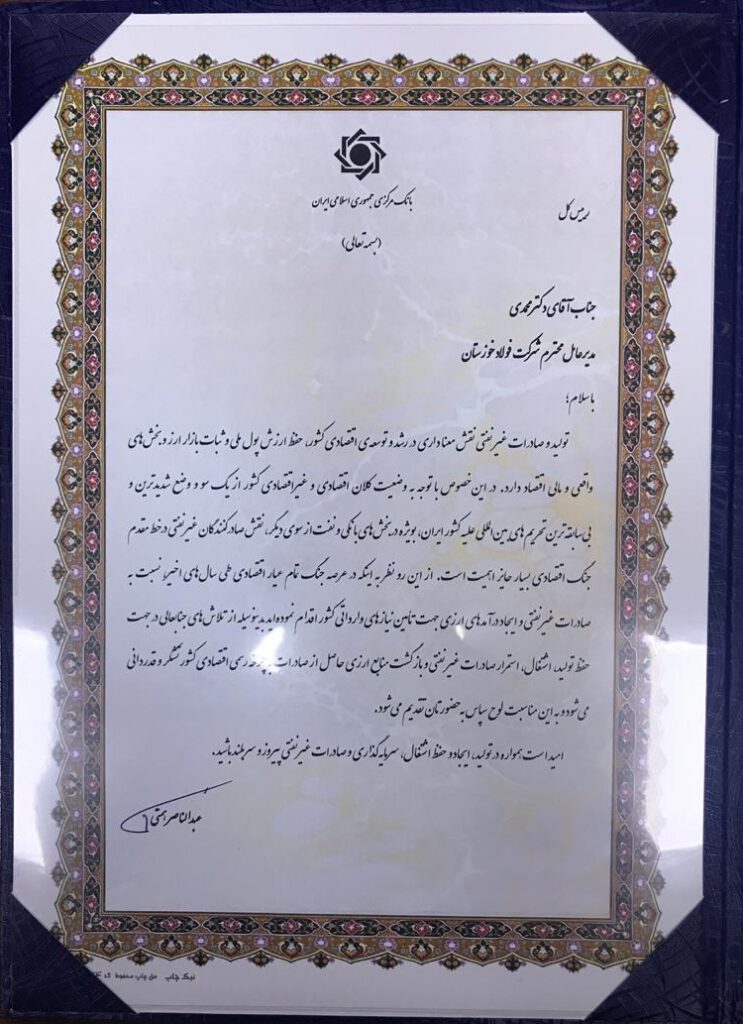 بانک مرکزی جمهوری اسلامی ایران
رییس کل
(بسمه تعالی)
جناب آقای دکتر محمدی
مدیرعامل محترم شرکت فولاد خوزستان
باسلام؛
تولید و صادرات غیرنفتی نقش معناداری در رشد و توسعه‌ی اقتصادی کشور، حفظ ارزش پول ملی و ثبات بازار ارز و بخش‌های
واقعی و مالی اقتصاد دارد. در این خصوص با توجه به وضعیت کلان اقتصادی و غیراقتصادی کشور از یک سو و وضع شدیدترین و
بی‌سابقه‌ترین تحریم‌های بین‌المللی علیه کشور ایران، بویژه در بخش‌های بانکی و نفت از سوی دیگر، نقش صادرکنندگان غیرنفتی در خط مقدم
جنگ اقتصادی بسیار حایز اهمیت است. از این رو نظر به اینکه در عرصه جنگ تمام عیار اقتصادی طی سال‌های اخیر، نسبت به
صادرات غیرنفتی و ایجاد درآمدهای ارزی جهت تأمین نیازهای وارداتی کشور اقدام نموده‌اید بدینوسیله از تلاش‌های جنابعالی در جهت
حفظ تولید، اشتغال، استمرار صادرات غیرنفتی و بازگشت منابع ارزی حاصل از صادرات به چرخه اقتصادی کشور تشکر و قدردانی
می‌شود و به این مناسبت لوح سپاس به حضورتان تقدیم می‌شود.
امید است همواره در تولید، ایجاد و حفظ اشتغال، سرمایه‌گذاری و صادرات غیرنفتی پیروز و سربلند باشید.
عبدالناصر همتی
نیک چاپ حق چاپ محفوظ